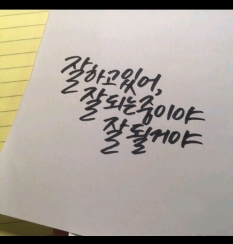 잘하고있어,
잘되는중이야
잘될거야